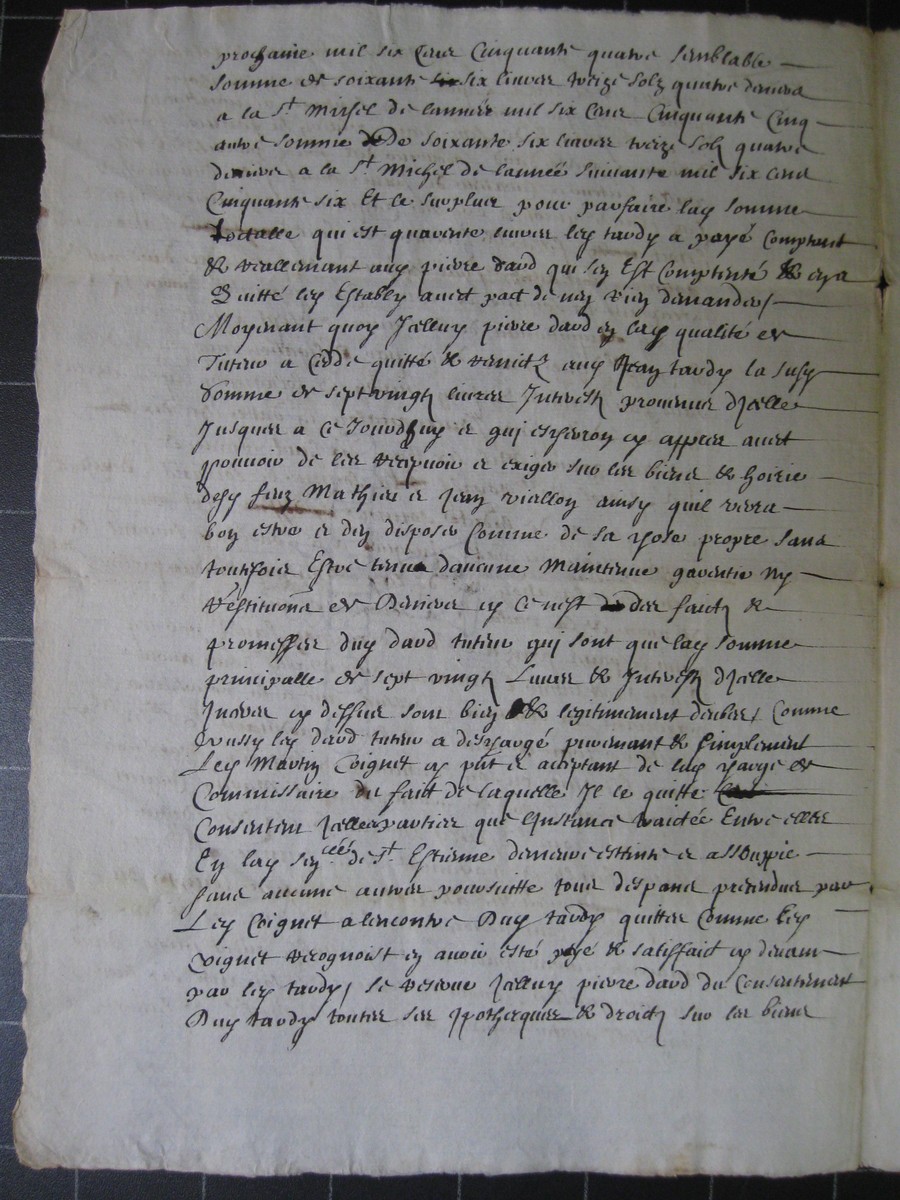 prochaine mil six cens cinquante quatre semblable
somme de soixante six livres treize solz quatre deniers
a la St Michel de lannée mil six cens cinquante cinq
autre somme de soixante six livres treize solz quatre
deniers a la St Michel de lannée suivante mil six cens
cinquante six Et le surplus pour parfaire lad somme
totalle qui est quarente livres led tardy a payé comptant
& reallement aud pierre dard qui sen Est comptenté & en a
Quitté led Estably avect pact de ney rien demander /
Moyenant quoy Icelluy pierre dard en lad qualité de
Tuteur a cedde quitté & remict aud Jean tardy la susd
Somme de sept vingtz livres Interestz provenus dIcelle
Jusques a ce Jourdhuy et qui escherron cy appres avect
pouvoir de les recepvoir et exiger sur les biens & hoirie
desd feuz Mathieu et Jean viallon ainsy quil verra
bon estre et den disposer Comme de sa chose propre sans
toutesfois Estre tenu daucune Maintenue garentie ny
restitution de Deniers cy ce nest des faictz &
promesses dud dard tuteur qui sont que lad somme
principalle de sept vingtz Livres & Interestz dIcelle
cy dessus sont bien & legitimement deubes, Comme
Aussy led dard tuteur a deschargé purement & simplement
Led Martin Coignet cy pnt et acceptant de lad charge de
Commissaire du fait de laquelle Il le quitte
Consentent Icelles parties que lInstance traictée Entre elles
En lad senéé de St Estienne demeure estinte et assoupie
sans aucune autres poursuitte tous despans pretendus par
Led Coignet a lencontre Dud tardy quittes Comme led
Coignet recognoist en avoir esté payé & satisfait cy devant
par led tardy / se reserve Icelluy pierre dard du Consentement
Dud tardy toutes ses Ypotheques & droictz sur les biens